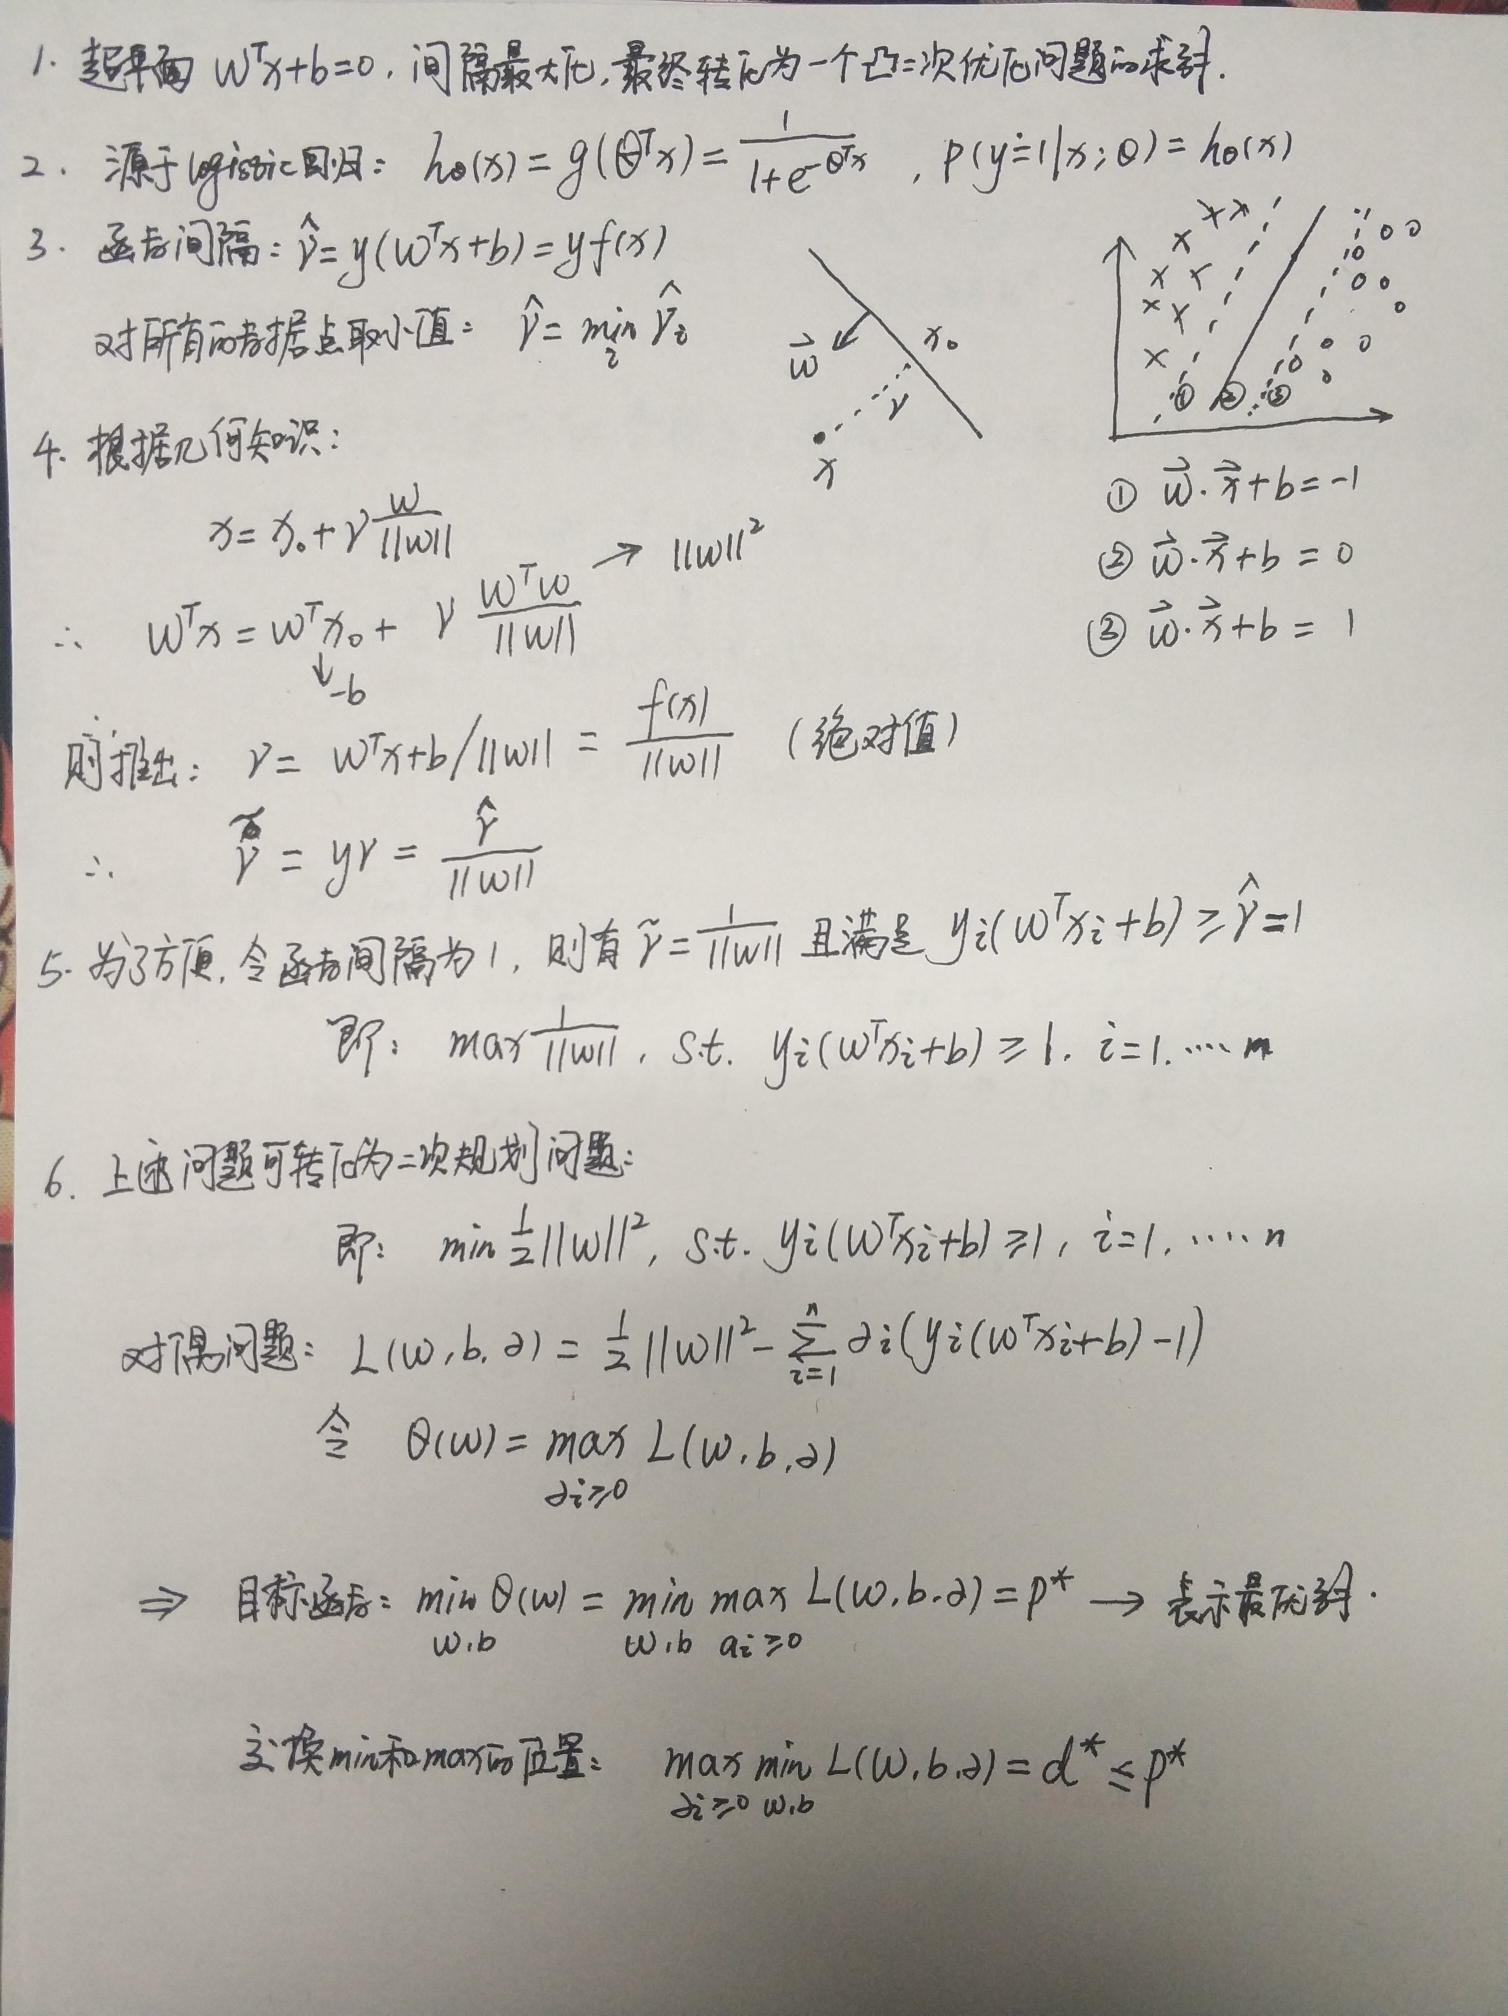 1. 超平面 wᵀx+b=0, 间隔最大化, 最终转化为一个凸二次优化问题的求解.
2. 源于logistic回归: hθ(x) = g(θᵀx) = 1/(1+e^(-θᵀx)), p(y=1|x;θ) = hθ(x)
3. 函数间隔: γ̂ = y(wᵀx+b) = yf(x)
对所有的数据点取小值: γ̂ = min_i γ̂_i
w⃗
x₀
γ
x
① ② ③
① w⃗·x⃗+b=-1
② w⃗·x⃗+b = 0
③ w⃗·x⃗+b = 1
4. 根据几何知识:
x = x₀+γ w/||w||
∴ wᵀx = wᵀx₀ + γ wᵀw/||w|| → ||w||²
↓ -b
则推出: γ = wᵀx+b/||w|| = f(x)/||w|| (绝对值)
∴ γ̃ = yγ = γ̂/||w||
5. 为了方便, 令函数间隔为1, 则有 γ̃ = 1/||w|| 且满足 yi(wᵀxi+b) ≥ γ̂ = 1
即: max 1/||w||, s.t. yi(wᵀxi+b) ≥ 1, i=1, ···· n
6. 上述问题可转化为二次规划问题:
即: min ½||w||², s.t. yi(wᵀxi+b) ≥ 1, i=1, ····· n
对偶问题: L(w,b,∂) = ½||w||² - Σ_{i=1}^{n} ∂i(yi(wᵀxi+b)-1)
令 θ(w) = max_{∂i≥0} L(w,b,∂)
⇒ 目标函数: min_{w,b} θ(w) = min_{w,b} max_{ai≥0} L(w,b,∂) = p* → 表示最优解.
交换min和max的位置: max_{∂i≥0} min_{w,b} L(w,b,∂) = d* ≤ p*